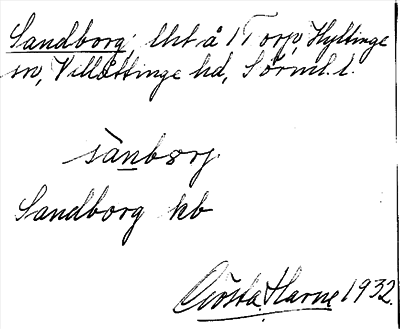 Sandborg, lht å 1 Torp, Hyltinge
sn, Villåttinge hd, Sörml. l.
sànbǝrj.
Sandborg kb
Gösta Harne 1932.